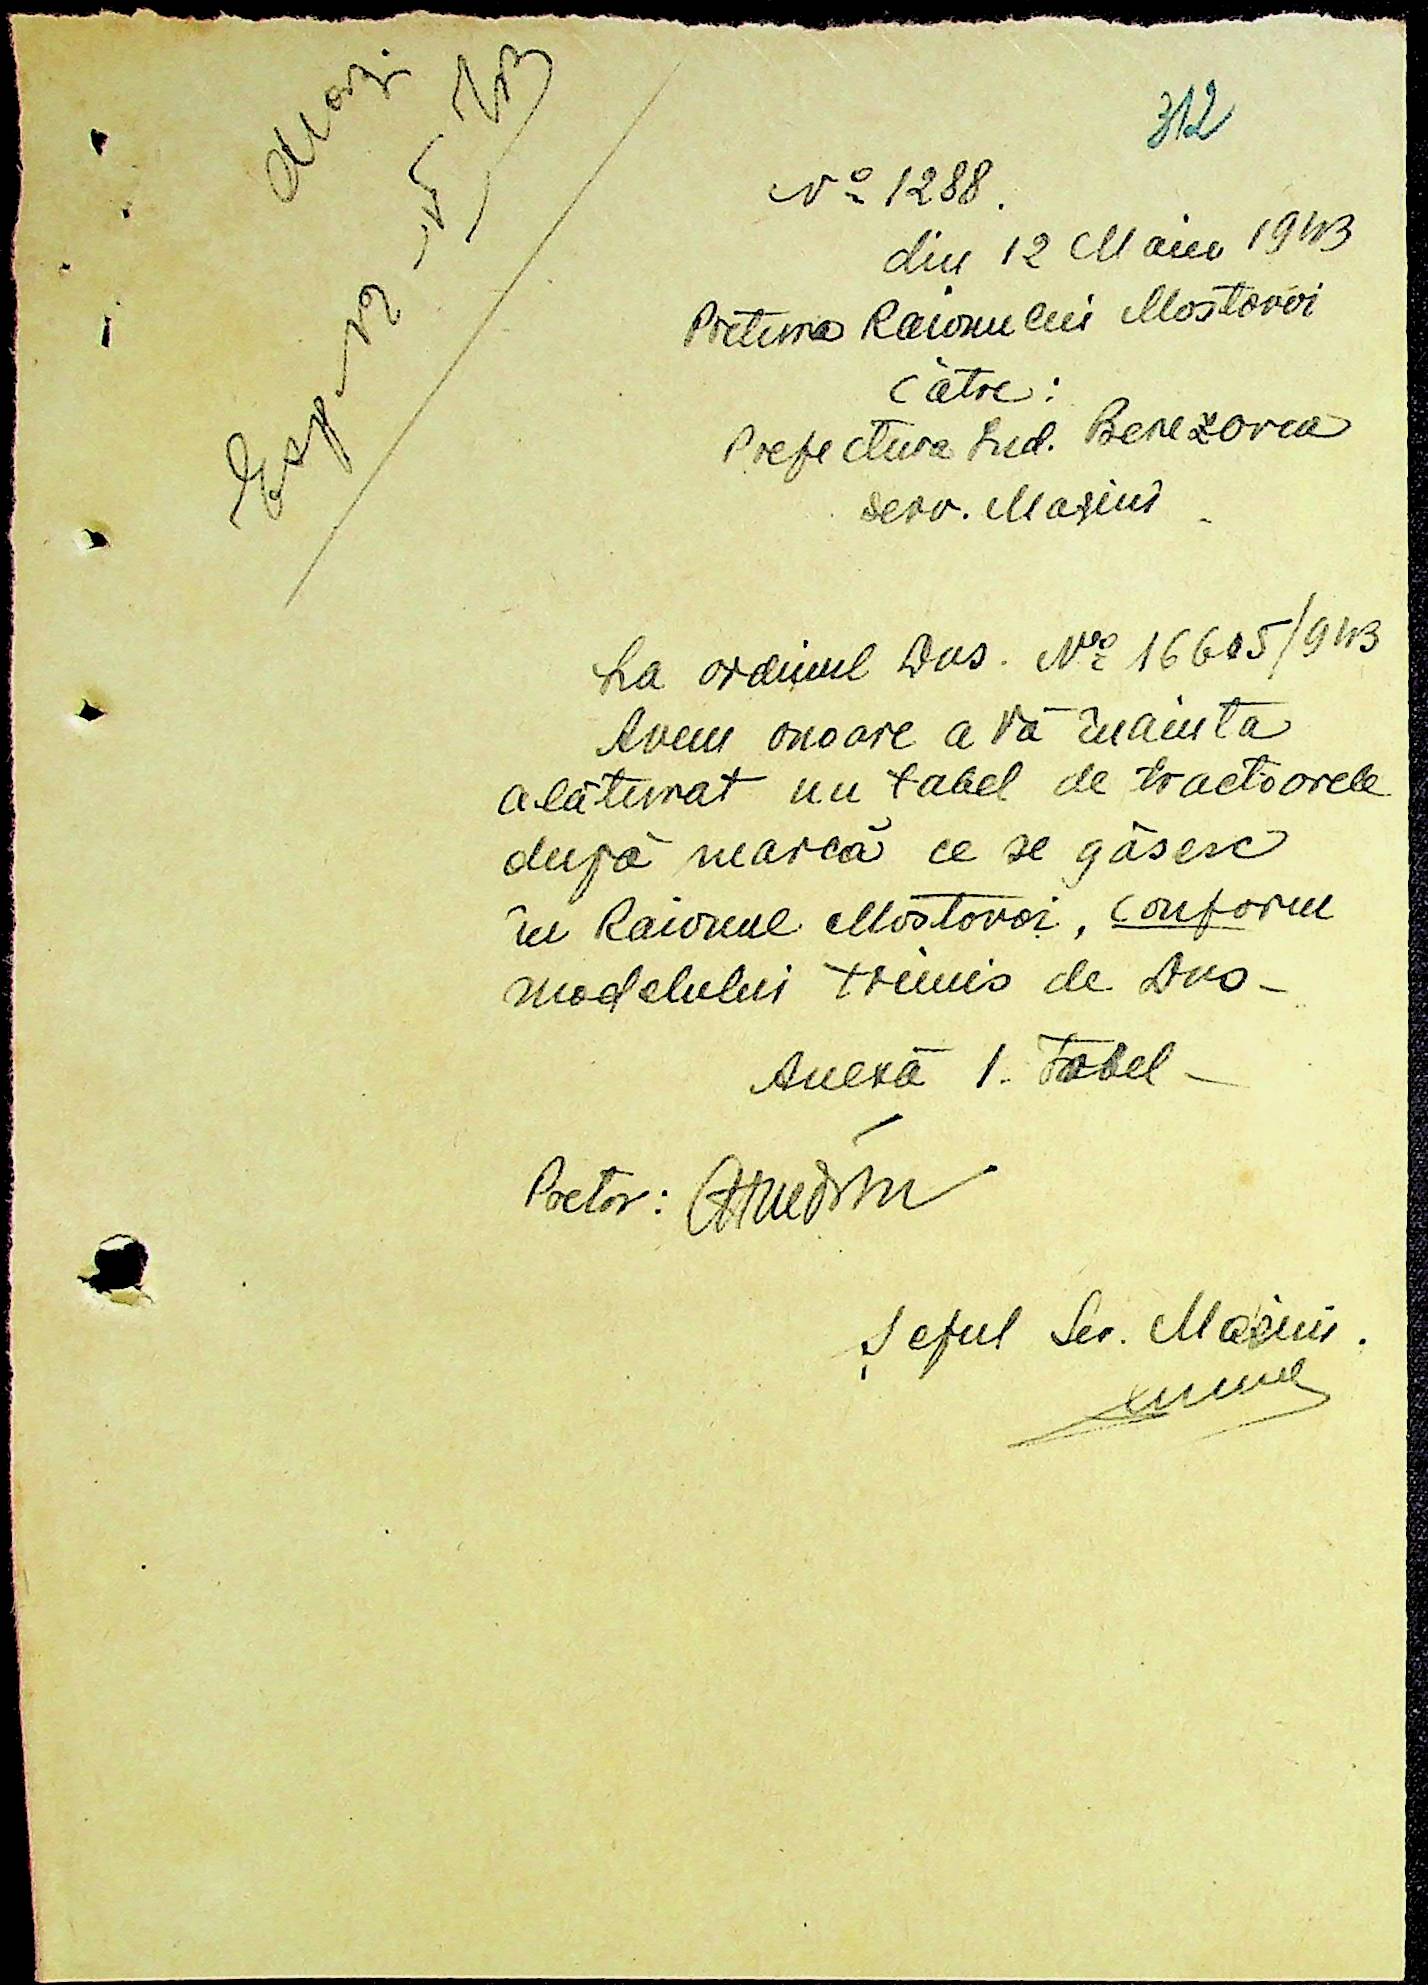 312
Nº 1288.
din 12 Maiu 1943
Pretura Raionului Mostovoi
Către:
Prefectura Jud. Berezovca
Serv. Mașini
La ordinul Dvs. Nº 16605/943
Avem onoare a vă înainta
alăturat un tabel de tractoarele
după marcă ce se găsesc
în Raionul Mostovoi, conform
modelului trimis de Dvs-
Anexă 1. Tabel-
Pretor:
Șeful Ser. Mașini.